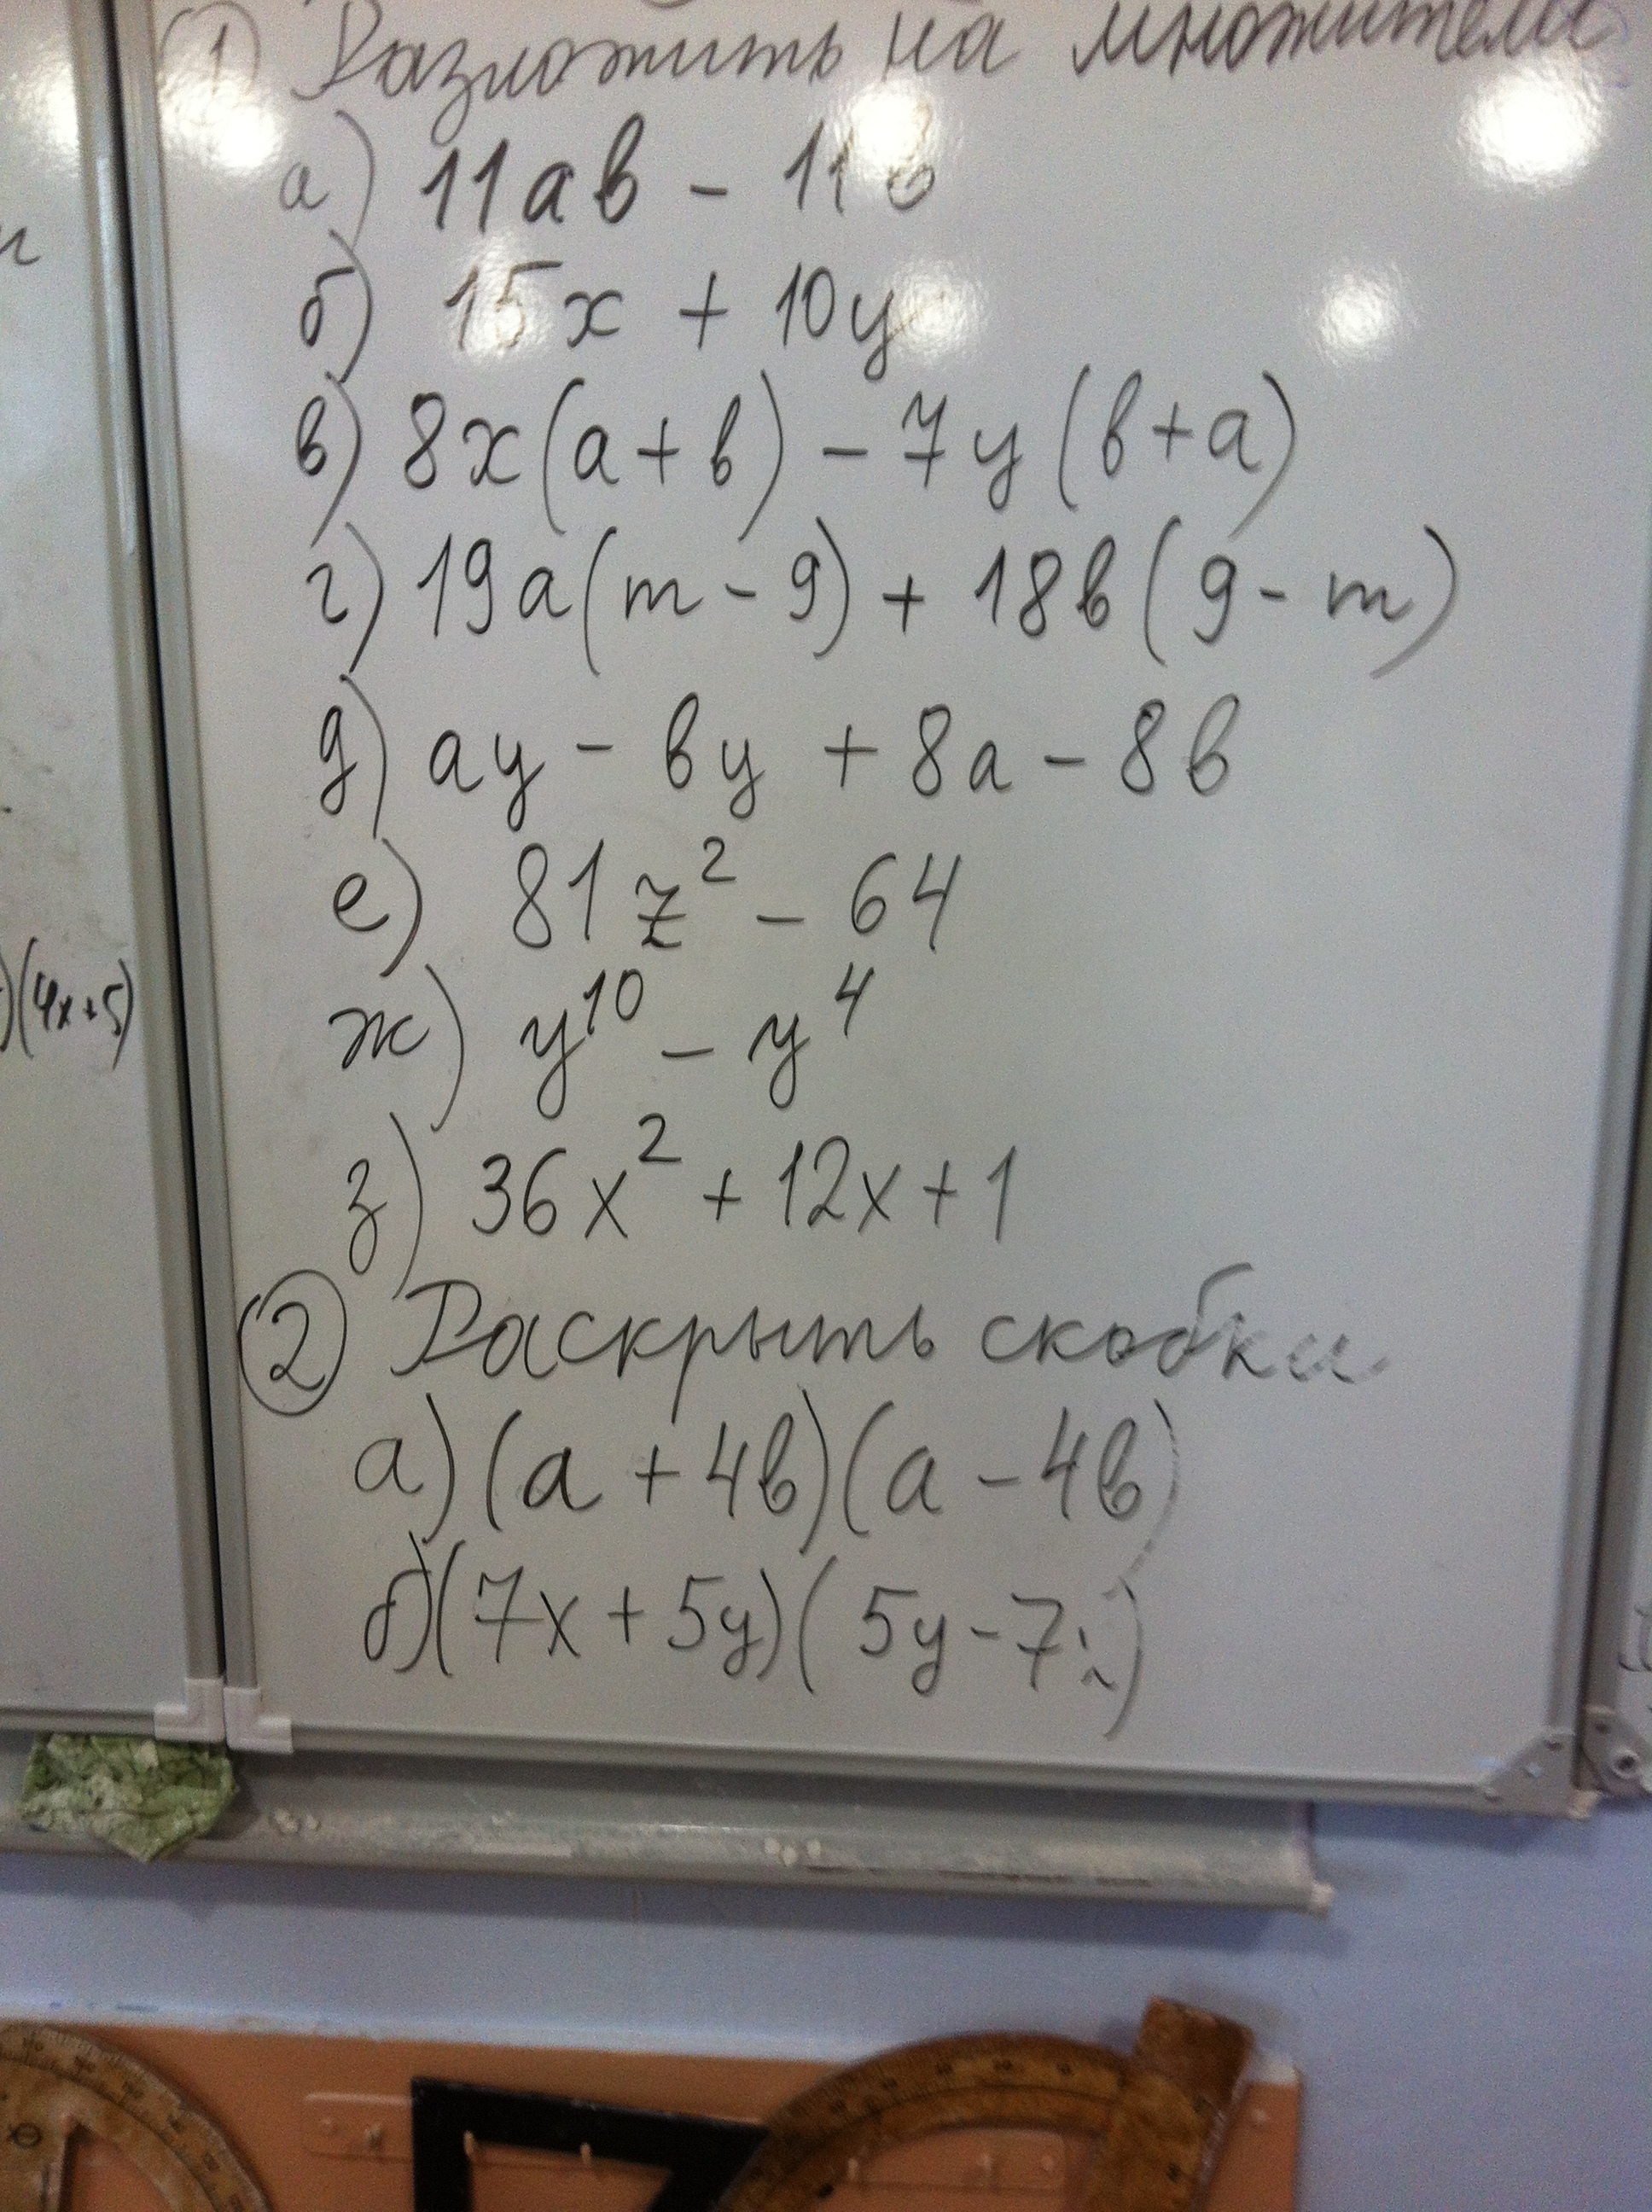 ① Разложить на множители
а) 11ав - 11в
б) 15x + 10y
в) 8x(a+в) - 7y(в+a)
г) 19a(m - 9) + 18в(9 - m)
д) ay - вy + 8a - 8в
)(4x+5)
е) 81z² - 64
ж) y¹⁰ - y⁴
з) 36x² + 12x + 1
② Раскрыть скобки
а) (a + 4в)(a - 4в)
б) (7x + 5y)(5y - 7x)